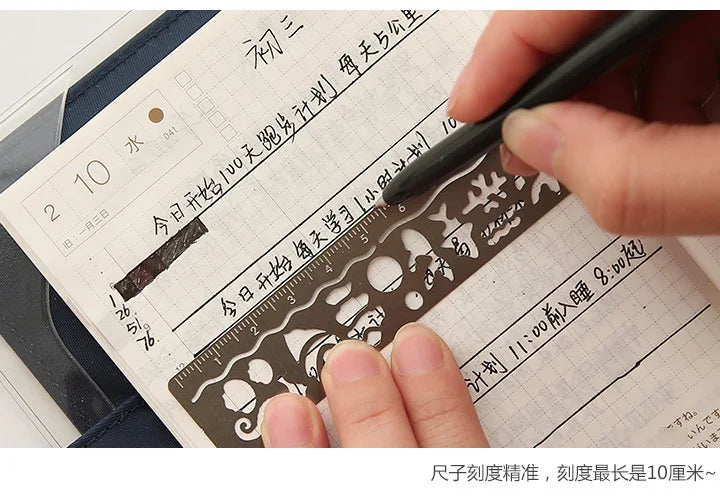 初三
2
10
水
041
旧 一月三日
今日开始100天跑步计划 每天5公里
今日开始每天学习1小时计划 10
1
26
51
76
1 2 3 4 5 6
计划 11:00前入睡 8:00起
ですね。
いんです
尺子刻度精准，刻度最长是10厘米~